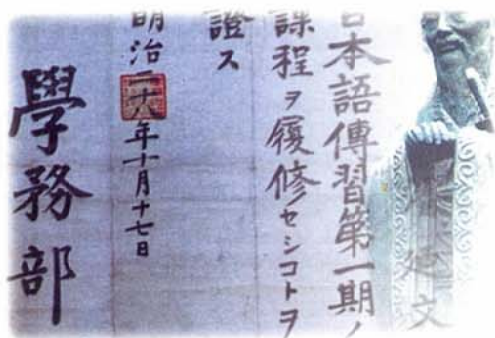 文
日本語傳習第一期ノ
課程ヲ履修セシコトヲ
證ス
明治二十八年十月十七日
學務部